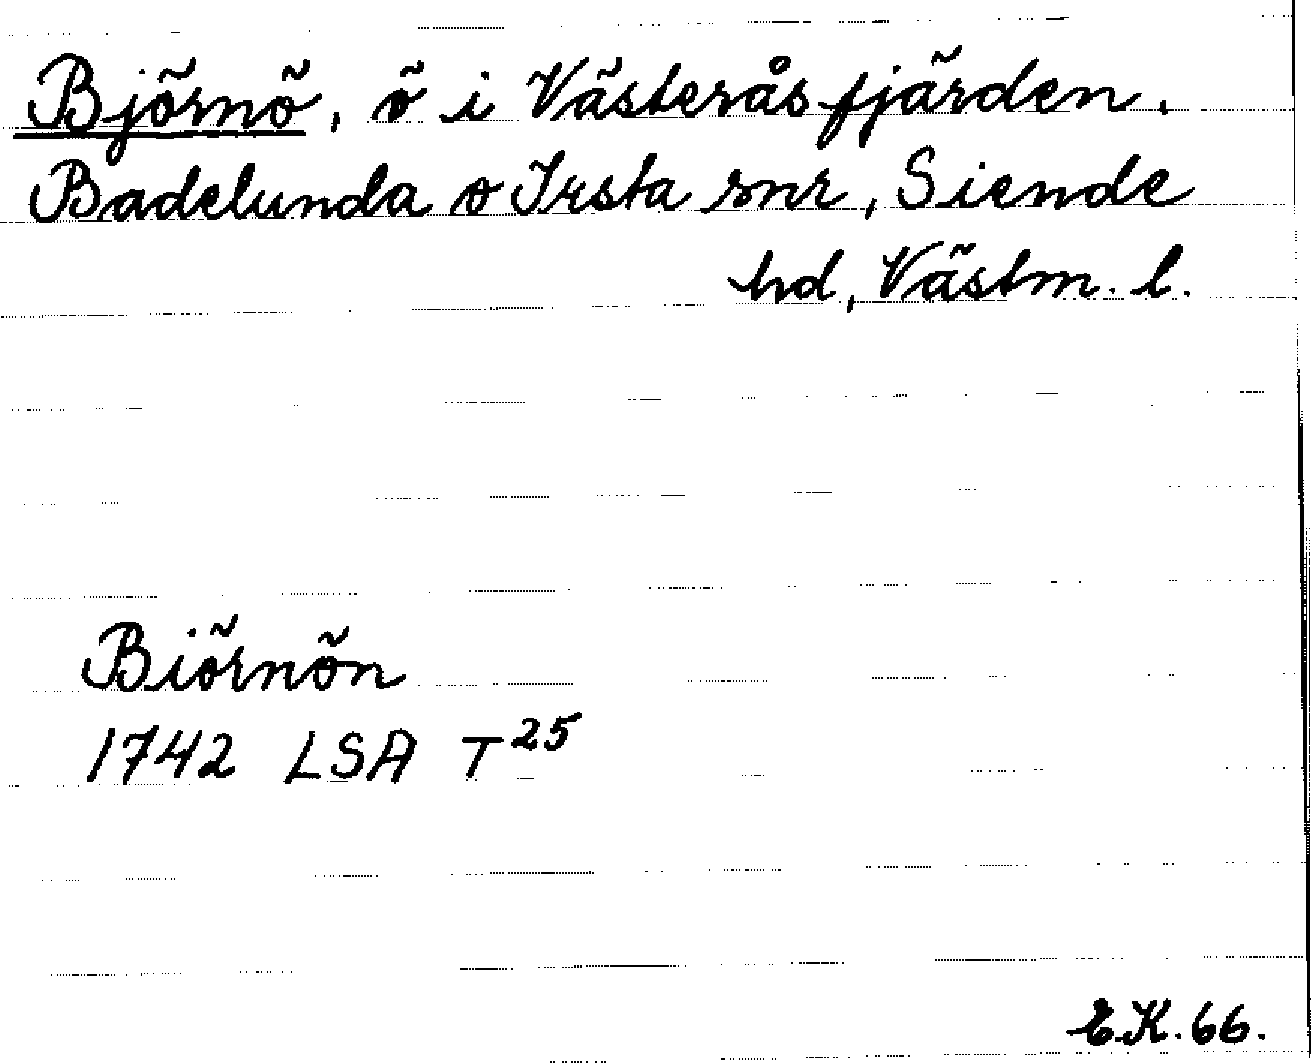 Björnö, ö i Västeråsfjärden.
Badelunda o Irsta snr, Siende
hd, Västm. l.
Biörnön
1742 LSA T25
E.K. 66.